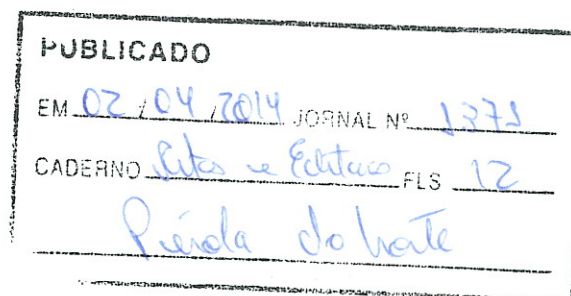 PUBLICADO
EM 02 / 04 / 2014 JORNAL Nº 1371
CADERNO Atos e Editais FLS 12
Pérola do Norte